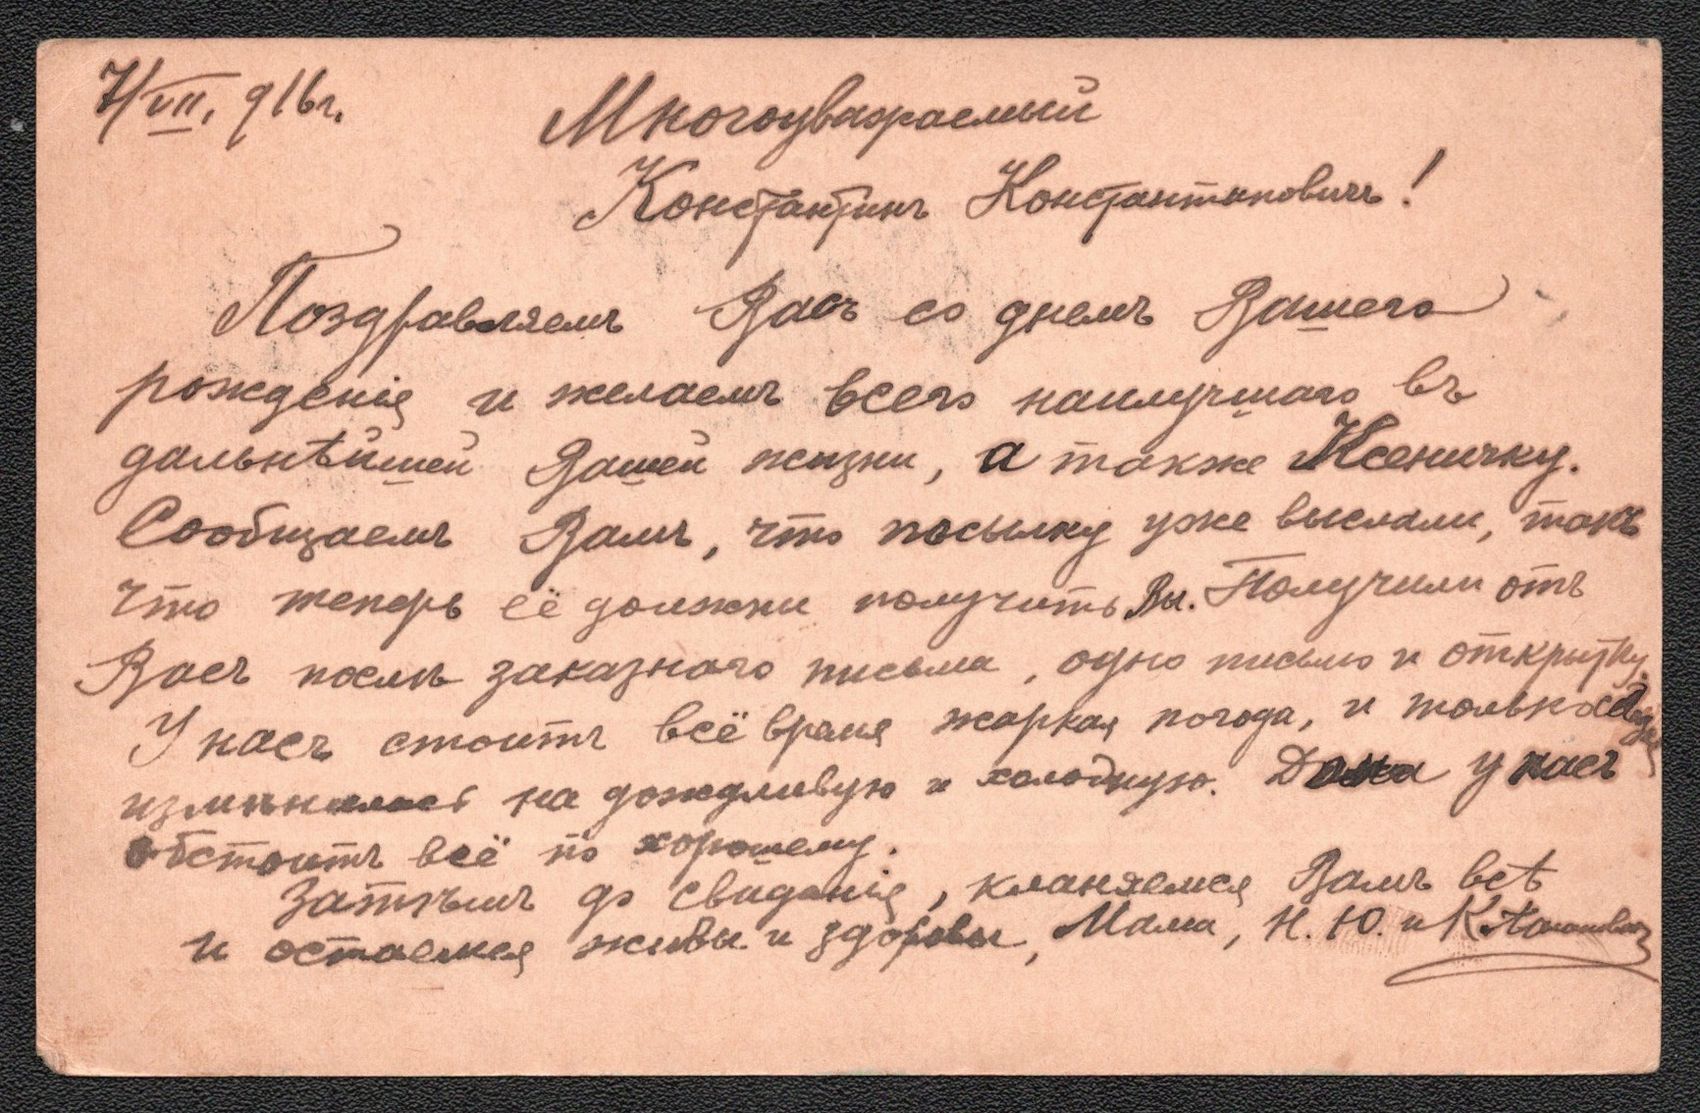 7/VII. 916 г.
Многоуважаемый
Константинъ Константиновичъ!
Поздравляемъ Васъ со днемъ Вашего
рожденія и желаемъ всего наилучшаго въ
дальнѣйшей Вашей жизни, а также Ксеничку.
Сообщаемъ Вамъ, что посылку уже выслали, такъ
что теперь её должны получить Вы. Получили отъ
Васъ послѣ заказного письма, одно письмо и открытку.
У насъ стоитъ всё время жаркая погода, и только
измѣнилась на дождливую и холодную. Дома у насъ
обстоитъ всё по хорошему.
Затѣмъ до свиданія, кланяемся Вамъ всѣ
и остаемся живы и здоровы, Мама, Н. Ю. и К.